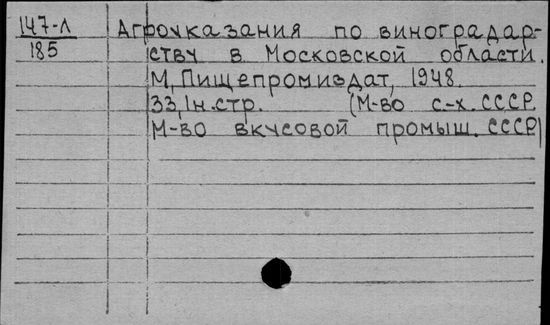 147-Л
185
Агроуказания по виноградар-
ству в Московской области.
М, Пищепромиздат, 1948.
33, 1н. стр. (М-во с-х. СССР.
М-во вкусовой промыш. СССР)